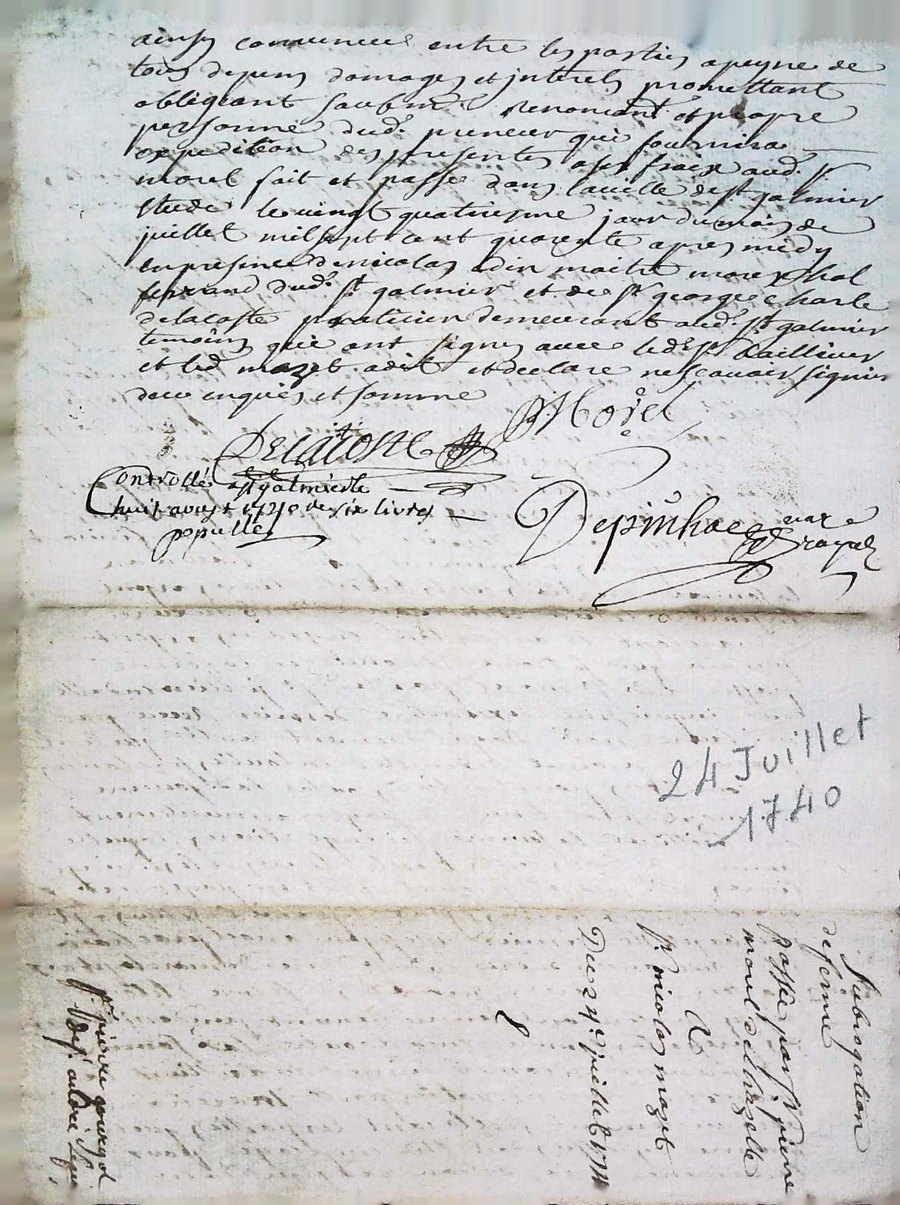 ainsy convenues entre les parties a peyne de
tous depens domages et interets promettant
obligeant soubmet renoncant et propre
personne dud. preneur qui fournira
expedition des presentes a ses fraix aud. Sr
morel fait et passé dans la ville de st galmier
étude le vingt quatriesme jour du mois de
juillet mil sept cent quarente apres midy
en presence de nicolas odin maitre marexchal
ferrand dud. st galmier et de sr george charle
delacoste praticien demeurant aud. st galmier
temoins qui ont signes avec led. Sr
et led mazet a dit et declare ne scavoir signer
de ce enquis et somme
Morel
Delacoste
Controllé a st galmier le
huit aoust 1740 de six livres
Depinhac nore
royal
24 Juillet
1740
Subrogation
de ferme
passée par sr pierre
morel
A
sr nicolas mazet
Du 24e juillet 1740
8
pierre